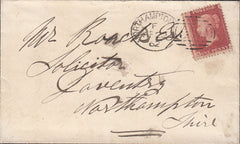 NORTHAMPTON
Mr Roach Esq
Solicitor
Daventry
Northampton
Shire